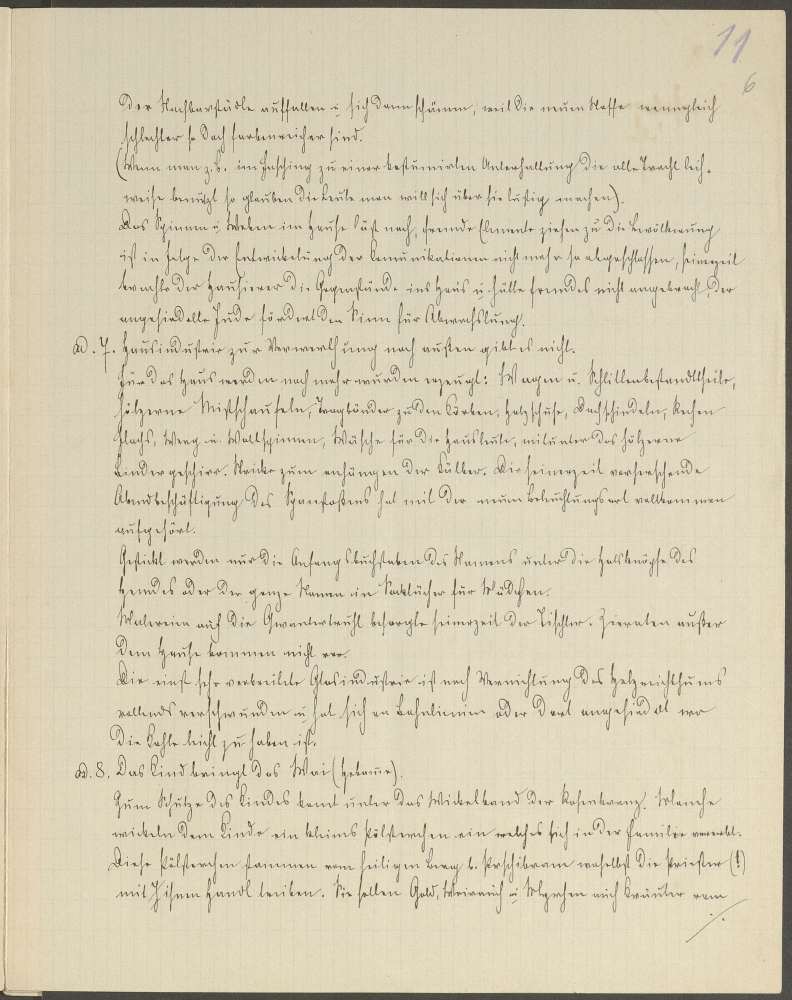 11
6
der Nachbarstädte auffallen u. sich dann schämen, weil die neuen Stoffe wenngleich
schlechter so doch farbenreicher sind.
(Wenn man z.B. im Fasching zu einer kostümirten Unterhaltung die alte Tracht leih-
weise benutzt so glauben die Leute man will sich über sie lustig machen).
Das Spinnen u. Weben im Hause läßt nach, fremde Elmente ziehen zu die Bevölkerung
ist in Folge der Entwickelung der Comunikationen nicht mehr so abgeschlossen, seinerzeit
brachte der Hausierer die Gegenstände ins Haus u. hätte fremdes nicht angebracht, der
angesiedelte Jude fördert den Sinn für Abwechslung.
ad. 7. Hausindustrie zur Verwerthung nach außen gibt es nicht.
Für das Haus werden noch mehr wurden erzeugt: Wagen u. Schlittenbestandttheile,
hölzerne Mistschaufeln, Tragbänder zu den Körben, Holzschuhe, Dachschindeln, Rechen
Flachs, Werg u. Wollspinnen, Wäsche für die Hausleute, mitunter das hölzerne
Bindergeschirr. Stricke zum anhängen der Kälber. Die seinerzeit vorherschende
Abendbeschäftigung des Spanstoßens hat mit der neuen Beleuchtungsart vollkommen
aufgehört.
Gestickt werden nur die Anfangsbuchstaben des Namens unter die Halsknöpfe des
Hemdes oder der ganze Namen in Sacktücher für Mädchen.
Malereien auf die Gwantertruhl besorgte seinerzeit der Tischler. Zieraten außer
dem Hause kommen nicht vor.
Die einst sehr verbreitete Glasindustrie ist nach Vernichtung des Holzreichthums
vollends verschwunden u. hat sich an Bahnlinien oder dort angesiedelt wo
die Kohle leicht zu haben ist.
ad. 8. Das Kind bringt das Wei (Hebame).
Zum Schutze des Kindes kommt unter das Wickelband der Rosenkranz. Manche
wickeln dem Kinde ein kleines Pölsterchen ein welches sich in der Familie vererbt.
Diese Pölsterchen stammen vom heiligen Berg b. Przibram woselbst die Priester (!)
mit ihnen Handl treiben. Sie sollen Gold, Weirauch u. Myrhen auch Kräuter vom
./.